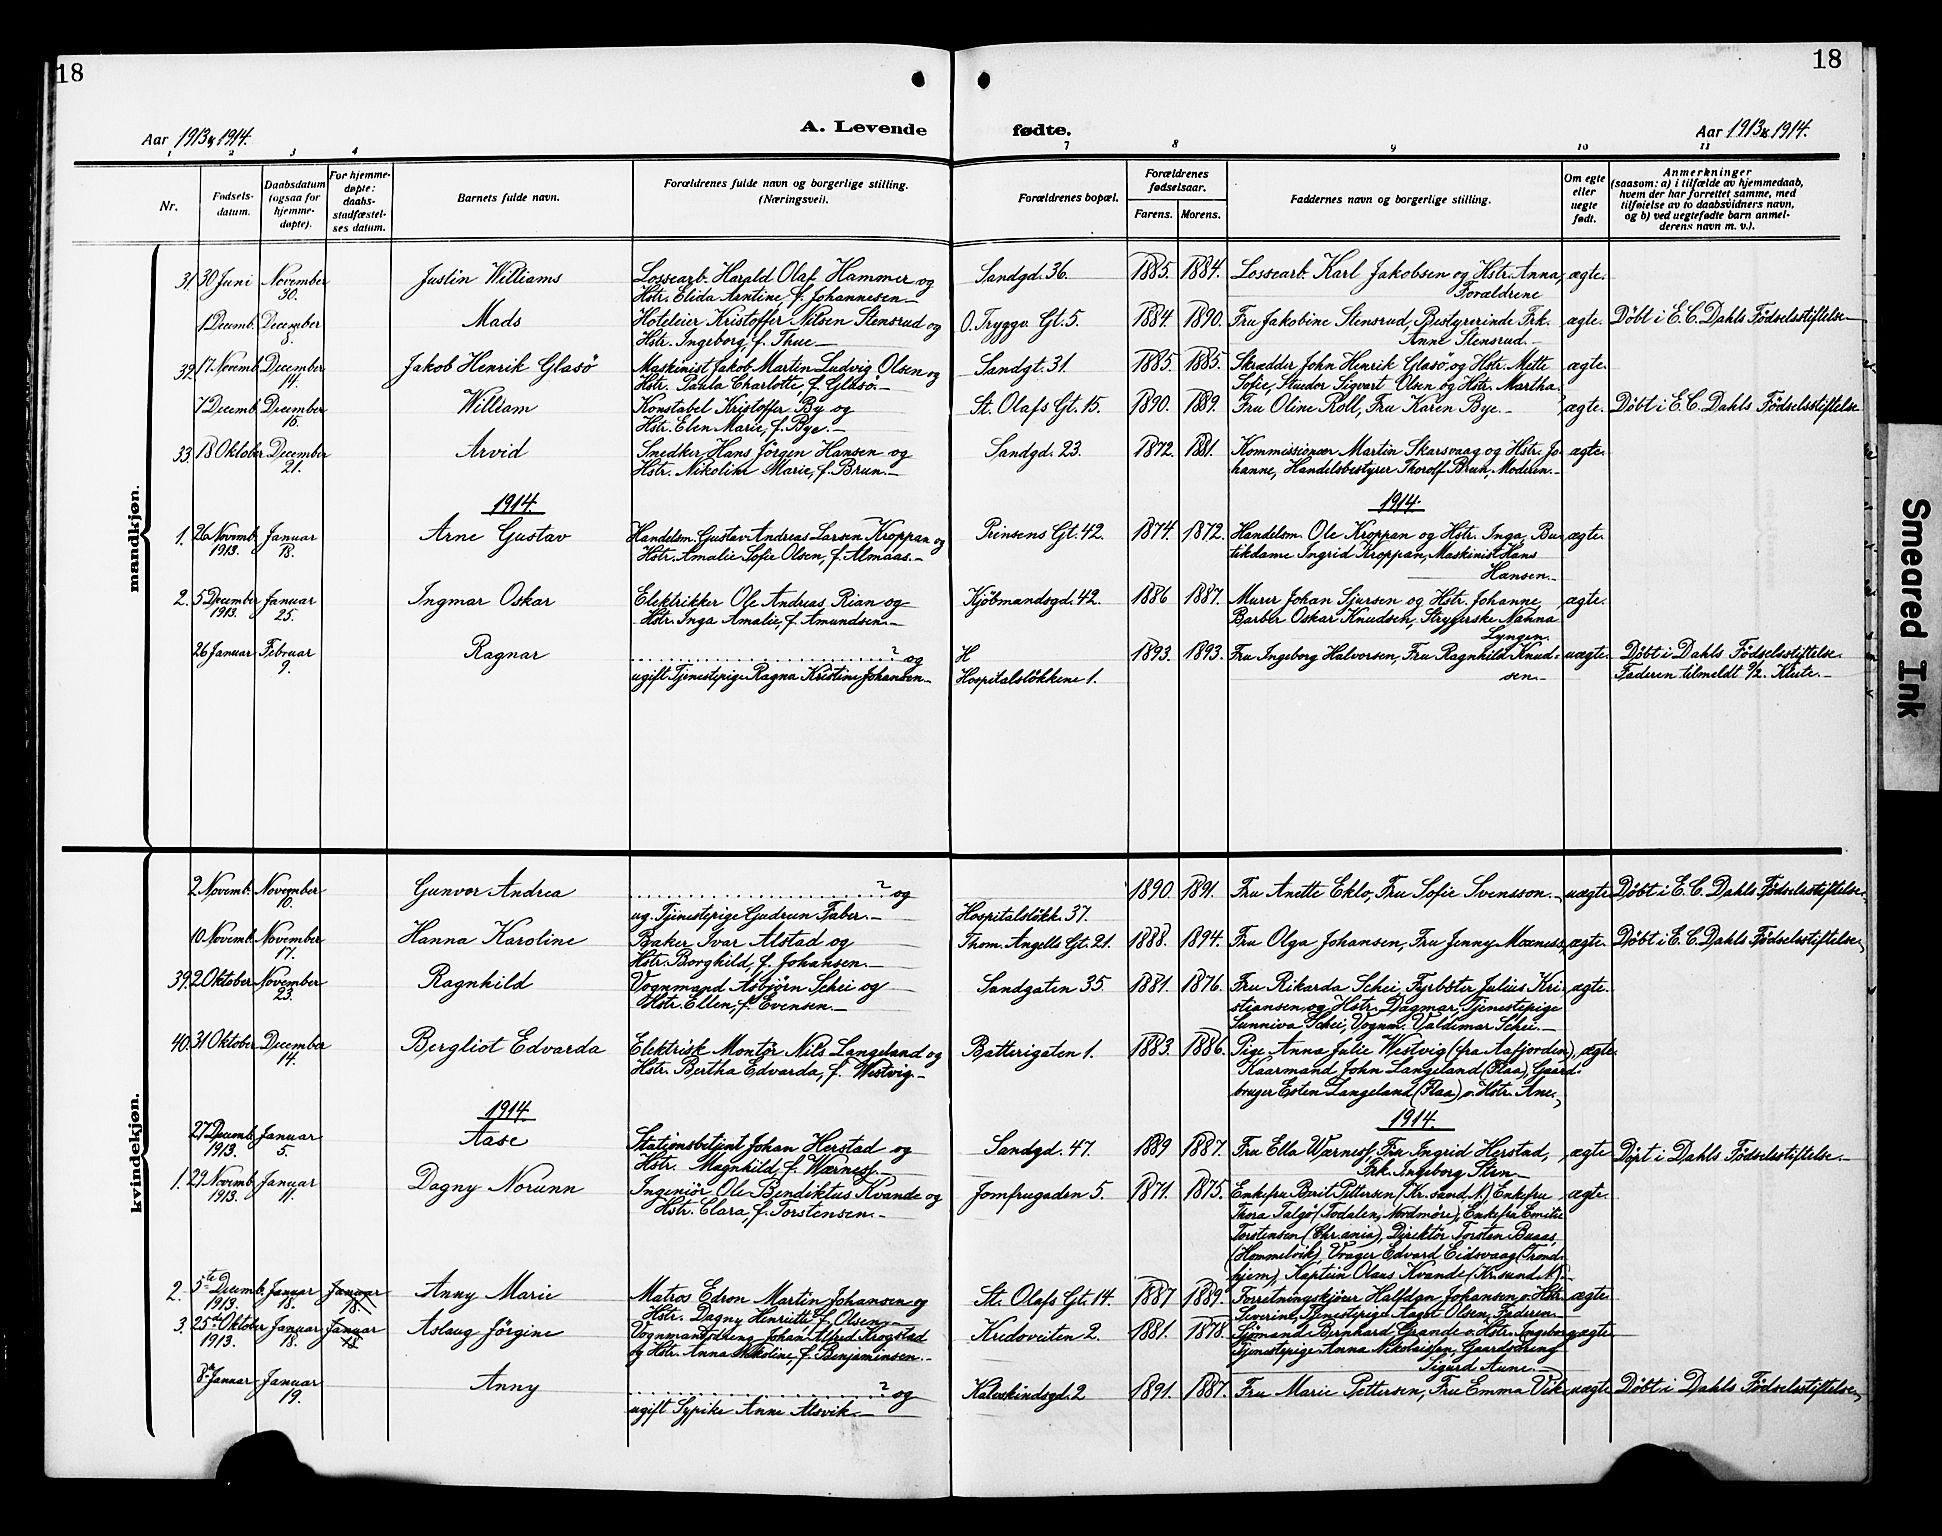 18
18
Aar 1913 & 1914.
A. Levende fødte.
Aar 1913 & 1914.
1 2 3 4 7 8 9 10 11
Nr.
Fødsels-
datum.
Daabsdatum
(ogsaa for
hjemme-
døpte).
For hjemme-
døpte:
daabs-
stadfæstel-
ses datum.
Barnets fulde navn.
Forældrenes fulde navn og borgerlige stilling.
(Næringsvei).
Forældrenes bopæl.
Forældrenes
fødselsaar.
Farens. Morens.
Faddernes navn og borgerlige stilling.
Om egte
eller
uegte
født.
Anmerkninger
(saasom: a) i tilfælde av hjemmedaab,
hvem der har forrettet samme, med
tilføielse av to daabsvidners navn,
og b) ved uegtefødte barn anmel-
derens navn m. v.).
mandkjøn.
31. 30 Juni November Justin Williams Lossearb. Harald Olaf Hammer og Sandgd. 36. 1885. 1884. Lossearb. Karl Jakobsen og Hstr. Anna, ægte.
30. Hstr. Elida Arntine, f. Johannesen.— Forældrene
1 Decemb. December Mads Hoteleier Kristoffer Nilsen Stensrud og O. Tryggv. Gt. 5. 1884. 1890. Fru Jakobine Stensrud, Bestyrerinde Frk. ægte. Döbt i E. C. Dahls Födselsstiftelse—
8. Hstr. Ingeborg, f. Thue.— Anne Stensrud.—
32. 17. Novemb. December Jakob Henrik Glasö Maskinist Jakob Martin Ludvig Olsen og Sandgt. 31. 1885. 1885. Skrædder John Henrik Glasö og Hstr. Mette ægte.
14. Hstr. Paula Charlotte, f. Glasö.— Sofie, Stuedor Sigvart Olsen og Hstr. Martha.
7 Decemb. December William Konstabel Kristoffer By og St. Olafs Gt. 15. 1890. 1889. Fru Oline Roll, Fru Karen Bye.— ægte. Döbt i E. C. Dahls Födselsstiftelse
15. Hstr. Elen Marie, f. Bye.—
33. 18 Oktober December Arvid Snedker Hans Jörgen Hansen og Sandgd. 23. 1872. 1881. Kommissionær Martin Skarsvaag og Hstr. Jo- ægte.
21. Hstr. Nikoline Marie, f. Brun.— hanne, Handelsbestyrer Thorolf Brun, Moderen.—
1914. 1914.
1. 26 Novemb. Januar Arne Gustav Handelsm. Gustav Andreas Larsen Kroppan og Prinsens Gt. 42. 1874. 1872. Handelsm. Ole Kroppan og Hstr. Inga, Bu- ægte.
1913. 18. Hstr. Amalie Sofie Olsen, f. Almaas.— tikdame Ingrid Kroppan, Maskinist Hans
Hansen.—
2. 5 December Januar Ingmar Oskar Elektrikker Ole Andreas Rian og Kjöbmandsgd. 42. 1886 1887. Murer Johan Sjursen og Hstr. Johanne, ægte.
1913. 25. Hstr. Inga Amalie, f. Amundsen.— Barber Oskar Knudsen, Strygerske Nanna
Lyngen.
26 Januar Februar Ragnar ? og H 1893. 1893. Fru Ingeborg Halvorsen, Fru Ragnhild Knud- uægte. Döbt i Dahls Födselsstiftelse.
9. ugift Tjenestepige Ragna Kristine Johansen.— Hospitalslökkene 1. sen.— Faderen tilmeldt 9/2. Klute.—
kvindekjøn.
2 Novemb. November Gunvor Andrea ? og 1890. 1891. Fru Anette Eklo, Fru Sofie Svensson.— uægte Döbt i E. C. Dahls Födselsstiftelse.
10. ug. Tjenestepige Gudrun Faber.— Hospitalslökk. 37.
10 Novemb. November Hanna Karoline Baker Ivar Alstad og Thom. Angells Gt. 21. 1888. 1894. Fru Olga Johansen, Fru Jenny Moxness, ægte. Döbt i E. C. Dahls Födselsstiftelse,
17. Hstr. Borghild, f. Johansen.—
39. 2 Oktober November Ragnhild Vognmand Asbjörn Schei og Sandgaten 35. 1881. 1876. Fru Rikarda Schei, Fyrböter Julius Kri- ægte.
23. Hstr. Ellen, f. Evensen.— stiansen og Hstr. Dagmar, Tjenestepige
Sunniva Schei, Vognm. Valdemar Schei.—
40. 31 Oktober December Bergliot Edvarda Elektrisk Montör Nils Langeland og Batterigaten 1. 1883. 1886. Pige Anna Julie Westvig (fra Aafjorden), ægte.
14. Hstr. Bertha Edvarda, f. Westvig.— Kaarmand John Langeland (Flaa), Gaard-
bruger Esten Langeland (Flaa) o. Hstr. Ane,
1914. 1914.
27 Decemb. Januar Aase Stationsbetjent Johan Herstad og Sandgd. 47. 1889 1887. Fru Ella Wærness, Fru Ingrid Herstad, ægte Döpt i Dahls Födselsstiftelse.—
1913. 5. Hstr. Magnhild, f. Wærness.— Frk. Ingeborg Sten—
1. 29 Novemb. Januar Dagny Norunn Ingeniör Ole Bendiktus Kvande og Jomfrugaden 5. 1871. 1875. Enkefru Berit Pettersen (Kr.sand N.) Enkefru ægte.
1913. 11. Hstr. Clara, f. Torstensen.— Thora Talgö (Todalen, Nordmöre), Enkefru Emilie
Torstensen (Chr.ania), Direktör Torsten Buaas
(Hommelvik), Vrager Edvard Eidsvaag (Trond-
hjem), Kaptein Olaus Kvande (Kr.sund N.)—
2. 5te Decemb. Januar Januar Anny Marie Matros Edvon Martin Johansen og St. Olafs Gt. 14. 1887 1889. Forretningskjörer Halfdan Johansen o. Hstr. ægte.
1913. 18. 18. Hstr. Dagny Henriette, f. Olsen.— Severine, Tjenestepige Aagot Olsen, Faderen.—
3. 25de Oktober Januar Januar Aslaug Jörgine Vognmandsdreng Johan Alfred Krogstad Kredoveiten 2. 1881. 1878. Sjömand Bernhard Grande o. Hstr. Ingeborg, ægte
1913. 18. 18. og Hstr. Anna Nikoline, f. Benjaminsen.— Tjenestepige Anna Nikolaissen, Gaardsdreng
Sigurd Aune.—
8de Januar Januar Anny ? og Kalvskindsgd. 2 1891. 1887. Fru Marie Pettersen, Fru Emma Vik. uægte. Döbt i Dahls Födselsstiftelse,
19. ugift Sypike Anne Alsvik.—
Smeared Ink